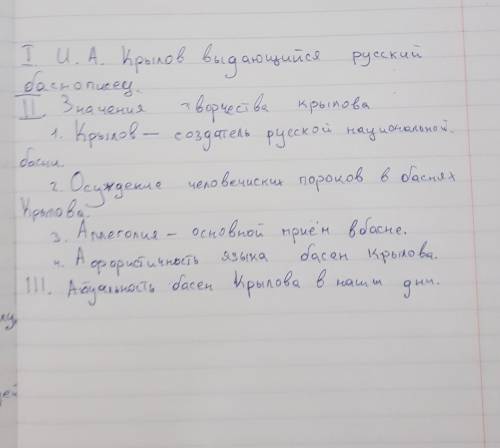 I И. А. Крылов выдающийся русский
баснописец.
II. Значения творчества крылова
1. Крылов — создатель русской национальной
басни.
2. Осуждение человечиских пороков в баснях
Крылова.
3. Аллеголия — основной приём в басне.
4. Афористичность языка басен Крылова.
III. Актуальность басен Крылова в наши дни.